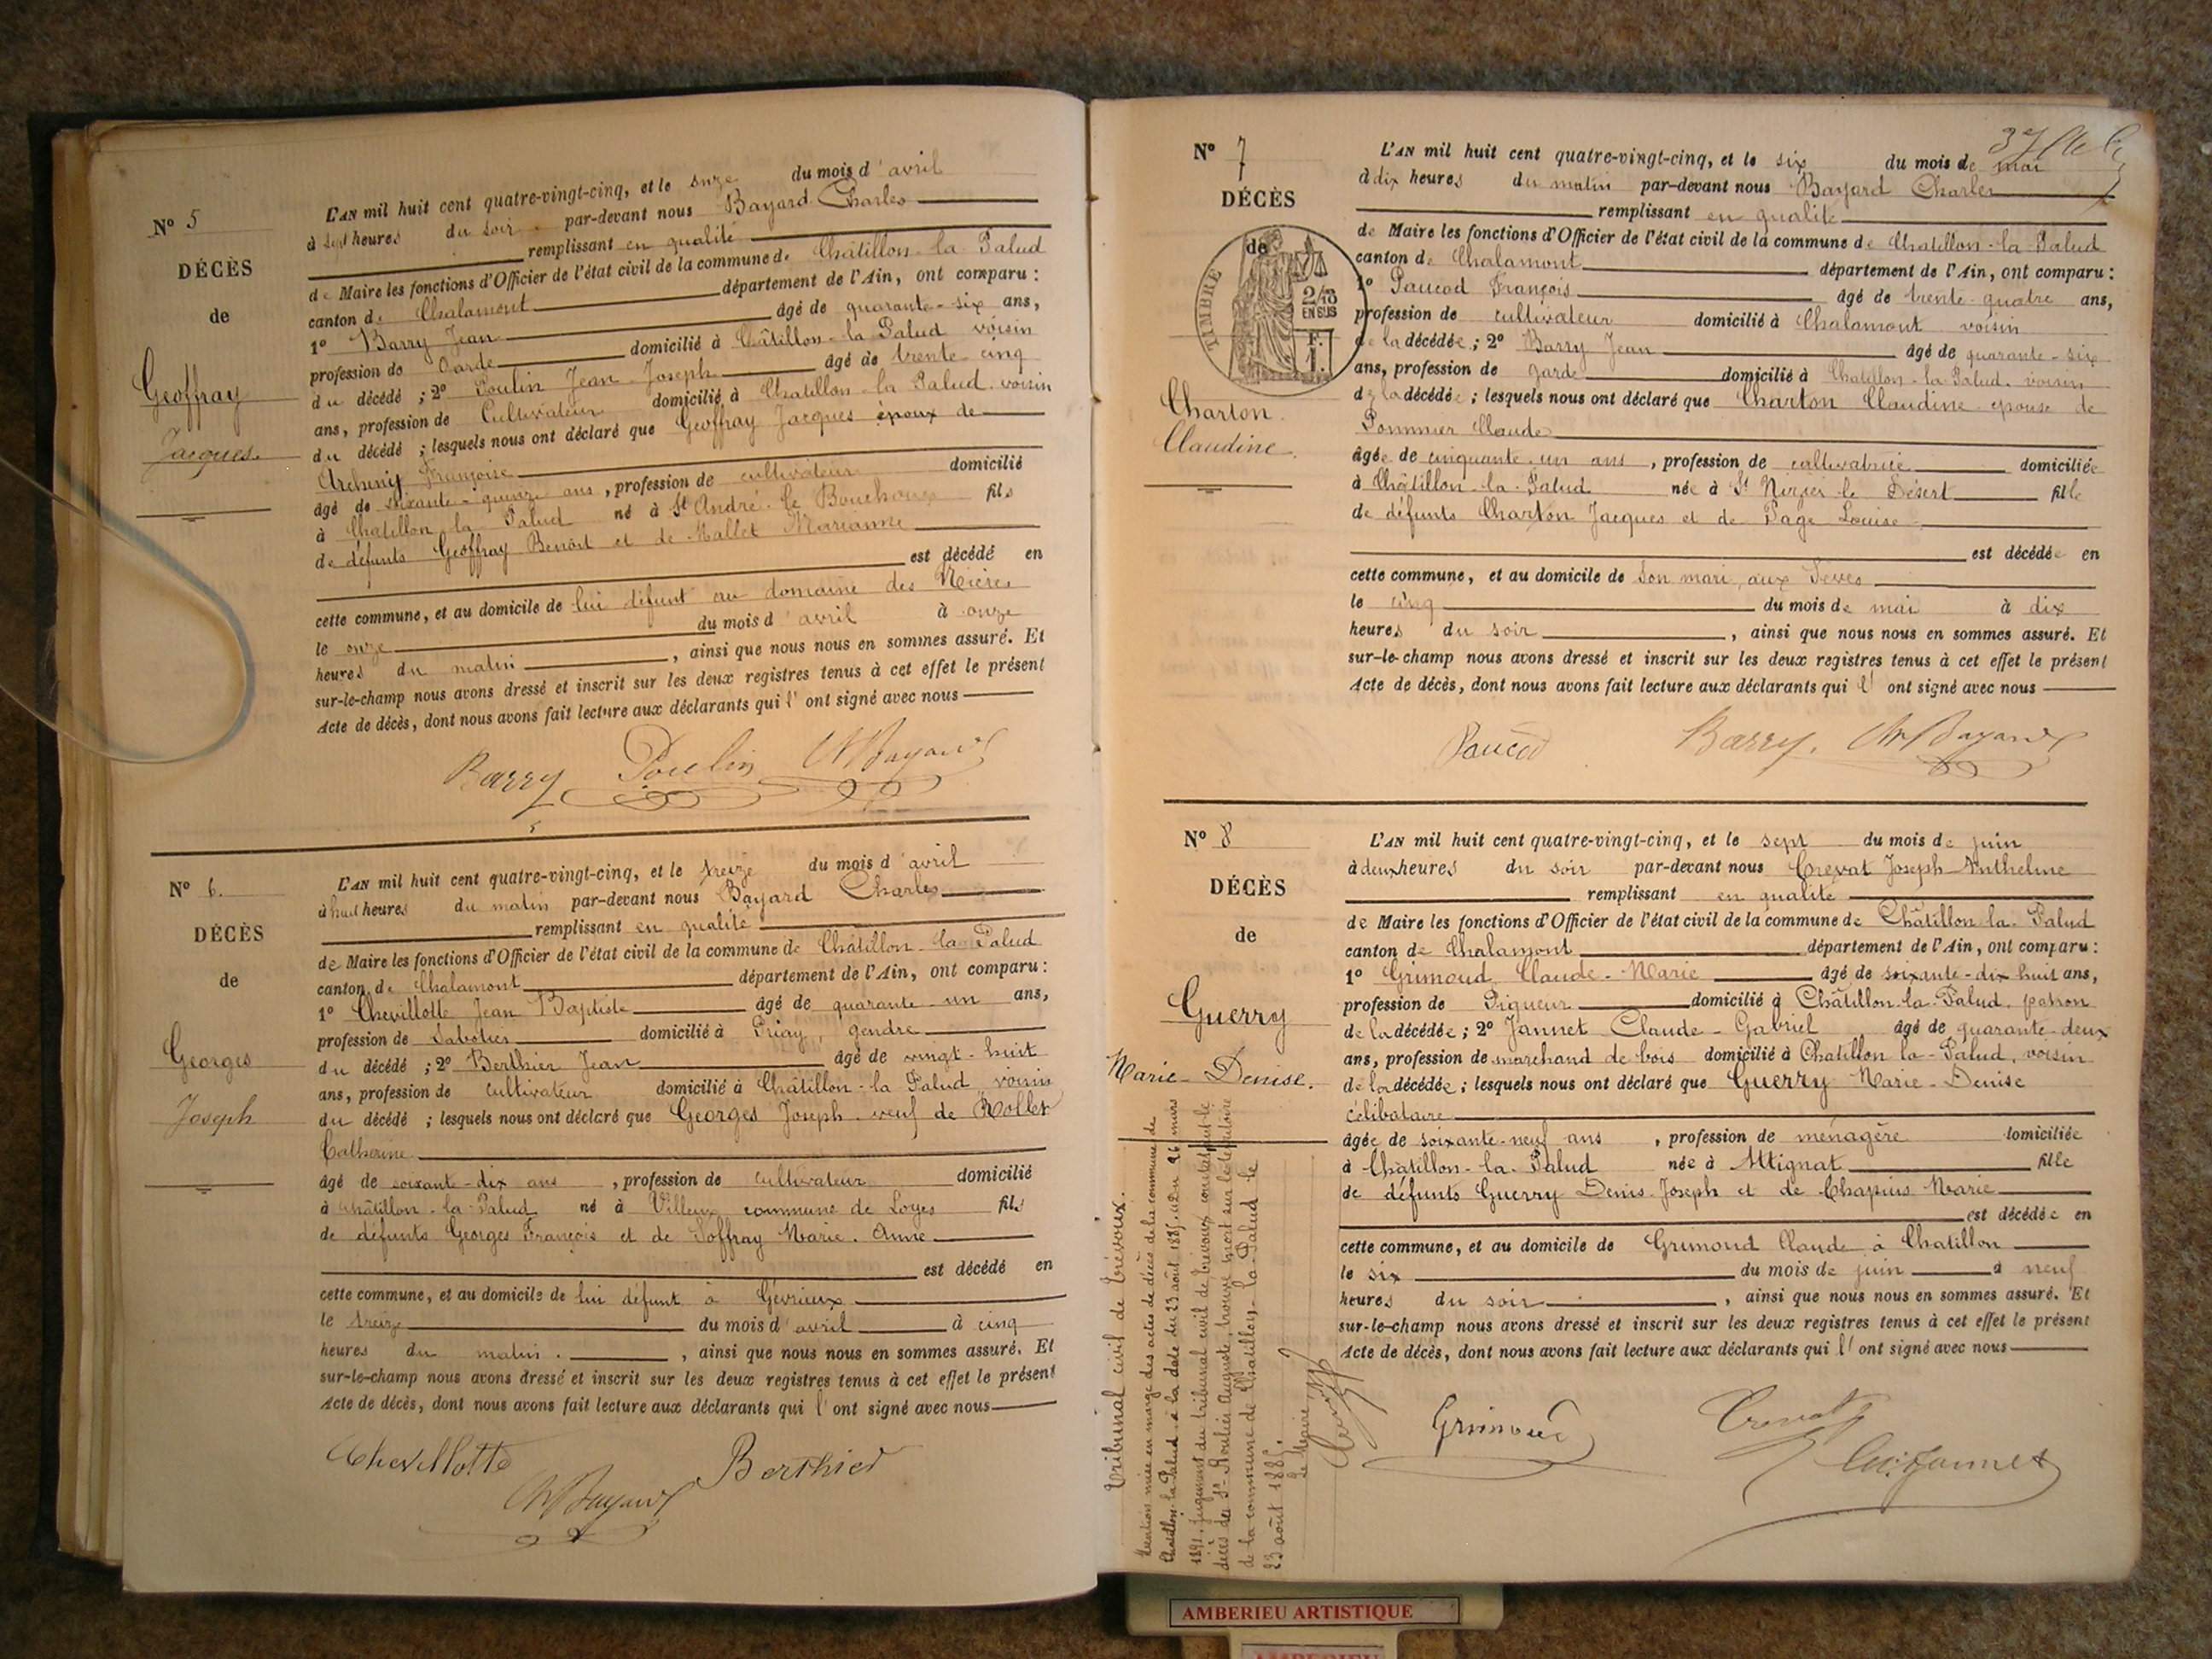 N° 5
DÉCÈS
de
Geoffray
Jacques.
L'AN mil huit cent quatre-vingt-cinq, et le onze du mois d'avril
à sept heures du soir par-devant nous Bayard Charles
remplissant en qualité
de Maire les fonctions d'Officier de l'état civil de la commune de Châtillon-la-Palud
canton de Chalamont département de l'Ain, ont comparu :
1° Barry Jean âgé de quarante-six ans,
profession de Garde domicilié à Châtillon-la-Palud voisin
du décédé ; 2° Poulin Jean-Joseph âgé de trente-cinq
ans, profession de Cultivateur domicilié à Chatillon-la-Palud voisin
du décédé ; lesquels nous ont déclaré que Geoffray Jacques époux de
Françoise
âgé de soixante-quinze ans, profession de cultivateur domicilié
à Chatillon la Palud né à St André-le-Bouchoux fils
de défunts Geoffray Benoît et de Mallet Marianne
est décédé en
cette commune, et au domicile de lui défunt au domaine des
le onze du mois d'avril à onze
heures du matin, ainsi que nous nous en sommes assuré. Et
sur-le-champ nous avons dressé et inscrit sur les deux registres tenus à cet effet le présent
Acte de décès, dont nous avons fait lecture aux déclarants qui l'ont signé avec nous
Barry Poulin Ch Bayard
N° 6.
DÉCÈS
de
Georges
Joseph
L'AN mil huit cent quatre-vingt-cinq, et le treize du mois d'avril
à huit heures du matin par-devant nous Bayard Charles
remplissant en qualité
de Maire les fonctions d'Officier de l'état civil de la commune de Châtillon-la-Palud
canton de Chalamont département de l'Ain, ont comparu :
1° Chevillotte Jean Baptiste âgé de quarante-un ans,
profession de Sabotier domicilié à Priay, gendre
du décédé ; 2° Berthier Jean âgé de vingt-huit
ans, profession de cultivateur domicilié à Châtillon-la-Palud voisin
du décédé ; lesquels nous ont déclaré que Georges Joseph veuf de Rollet
Catherine
âgé de soixante-dix ans, profession de cultivateur domicilié
à Châtillon-la-Palud né à Villieux commune de Loyes fils
de défunts Georges François et de Joffray Marie-Anne
est décédé en
cette commune, et au domicile de lui défunt à Gévrieux
le treize du mois d'avril à cinq
heures du matin, ainsi que nous nous en sommes assuré. Et
sur-le-champ nous avons dressé et inscrit sur les deux registres tenus à cet effet le présent
Acte de décès, dont nous avons fait lecture aux déclarants qui l'ont signé avec nous
Chevillotte Ch Bayard Berthier
37
N° 7
DÉCÈS
de
TIMBRE
2/10
EN SUS
F.
1.
Charton
Claudine
L'AN mil huit cent quatre-vingt-cinq, et le six du mois de mai
à dix heures du matin par-devant nous Bayard Charles
remplissant en qualité
de Maire les fonctions d'Officier de l'état civil de la commune de Chatillon-la-Palud
canton de Chalamont département de l'Ain, ont comparu :
1° Paucod François âgé de trente-quatre ans,
profession de cultivateur domicilié à Chalamont voisin
de la décédée ; 2° Barry Jean âgé de quarante-six
ans, profession de garde domicilié à Chatillon-la-Palud, voisin
de la décédée ; lesquels nous ont déclaré que Charton Claudine épouse de
Pommier Claude
âgée de cinquante-un ans, profession de cultivatrice domiciliée
à Châtillon-la-Palud née à St Nizier le Désert fille
de défunts Charton Jacques et de Page Louise
est décédée en
cette commune, et au domicile de son mari, aux
le cinq du mois de mai à dix
heures du soir, ainsi que nous nous en sommes assuré. Et
sur-le-champ nous avons dressé et inscrit sur les deux registres tenus à cet effet le présent
Acte de décès, dont nous avons fait lecture aux déclarants qui l'ont signé avec nous
Paucod Barry. Ch Bayard
N° 8
DÉCÈS
de
Guerry
Marie-Denise.
L'AN mil huit cent quatre-vingt-cinq, et le sept du mois de juin
à deux heures du soir par-devant nous Crevat Joseph-Anthelme
remplissant en qualité
de Maire les fonctions d'Officier de l'état civil de la commune de Châtillon-la-Palud
canton de Chalamont département de l'Ain, ont comparu :
1° Grimoud Claude-Marie âgé de soixante-dix huit ans,
profession de Piqueur domicilié à Châtillon-la-Palud, patron
de la décédée ; 2° Jannet Claude-Gabriel âgé de quarante-deux
ans, profession de marchand de bois domicilié à Chatillon-la-Palud, voisin
de la décédée ; lesquels nous ont déclaré que Guerry Marie-Denise
célibataire
âgée de soixante-neuf ans, profession de ménagère domiciliée
à Chatillon-la-Palud née à Attignat fille
de défunts Guerry Denis-Joseph et de Chapuis Marie
est décédée en
cette commune, et au domicile de Grimoud Claude à Chatillon
le six du mois de juin à neuf
heures du soir, ainsi que nous nous en sommes assuré. Et
sur-le-champ nous avons dressé et inscrit sur les deux registres tenus à cet effet le présent
Acte de décès, dont nous avons fait lecture aux déclarants qui l'ont signé avec nous
Grimoud Crevat Jannet
Tribunal civil de Trévoux.
Mention mise en marge des actes de décès de la commune de
Chatillon-la-Palud à la date du 23 août 1885. Du 26 mars
1891. Jugement du tribunal civil de Trévoux constatant le
décès du Sr Auguste, trouvé mort sur le territoire
de la commune de Chatillon-la-Palud le
23 août 1885.
Le
AMBERIEU ARTISTIQUE
AMBERIEU